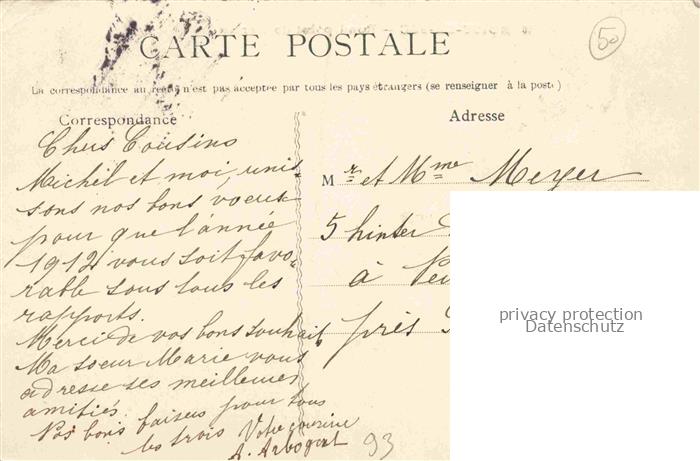 50
CARTE POSTALE
La correspondance au recto n'est pas acceptée par tous les pays étrangers (se renseigner à la poste)
Correspondance
Adresse
Chers Cousins
Michel et moi, unis-
sons nos bons voeux
pour que l'année
1912 vous soit favo-
rable sous tous les
rapports.
Merci de vos bons souhaits
Ma soeur Marie vous
adresse ses meilleures
amitiés.
Nos bons baisers pour tous
les trois Votre cousine
A. Arbogast
93
Mr et Mme Meyer
5 hinter
à
près
privacy protection
Datenschutz